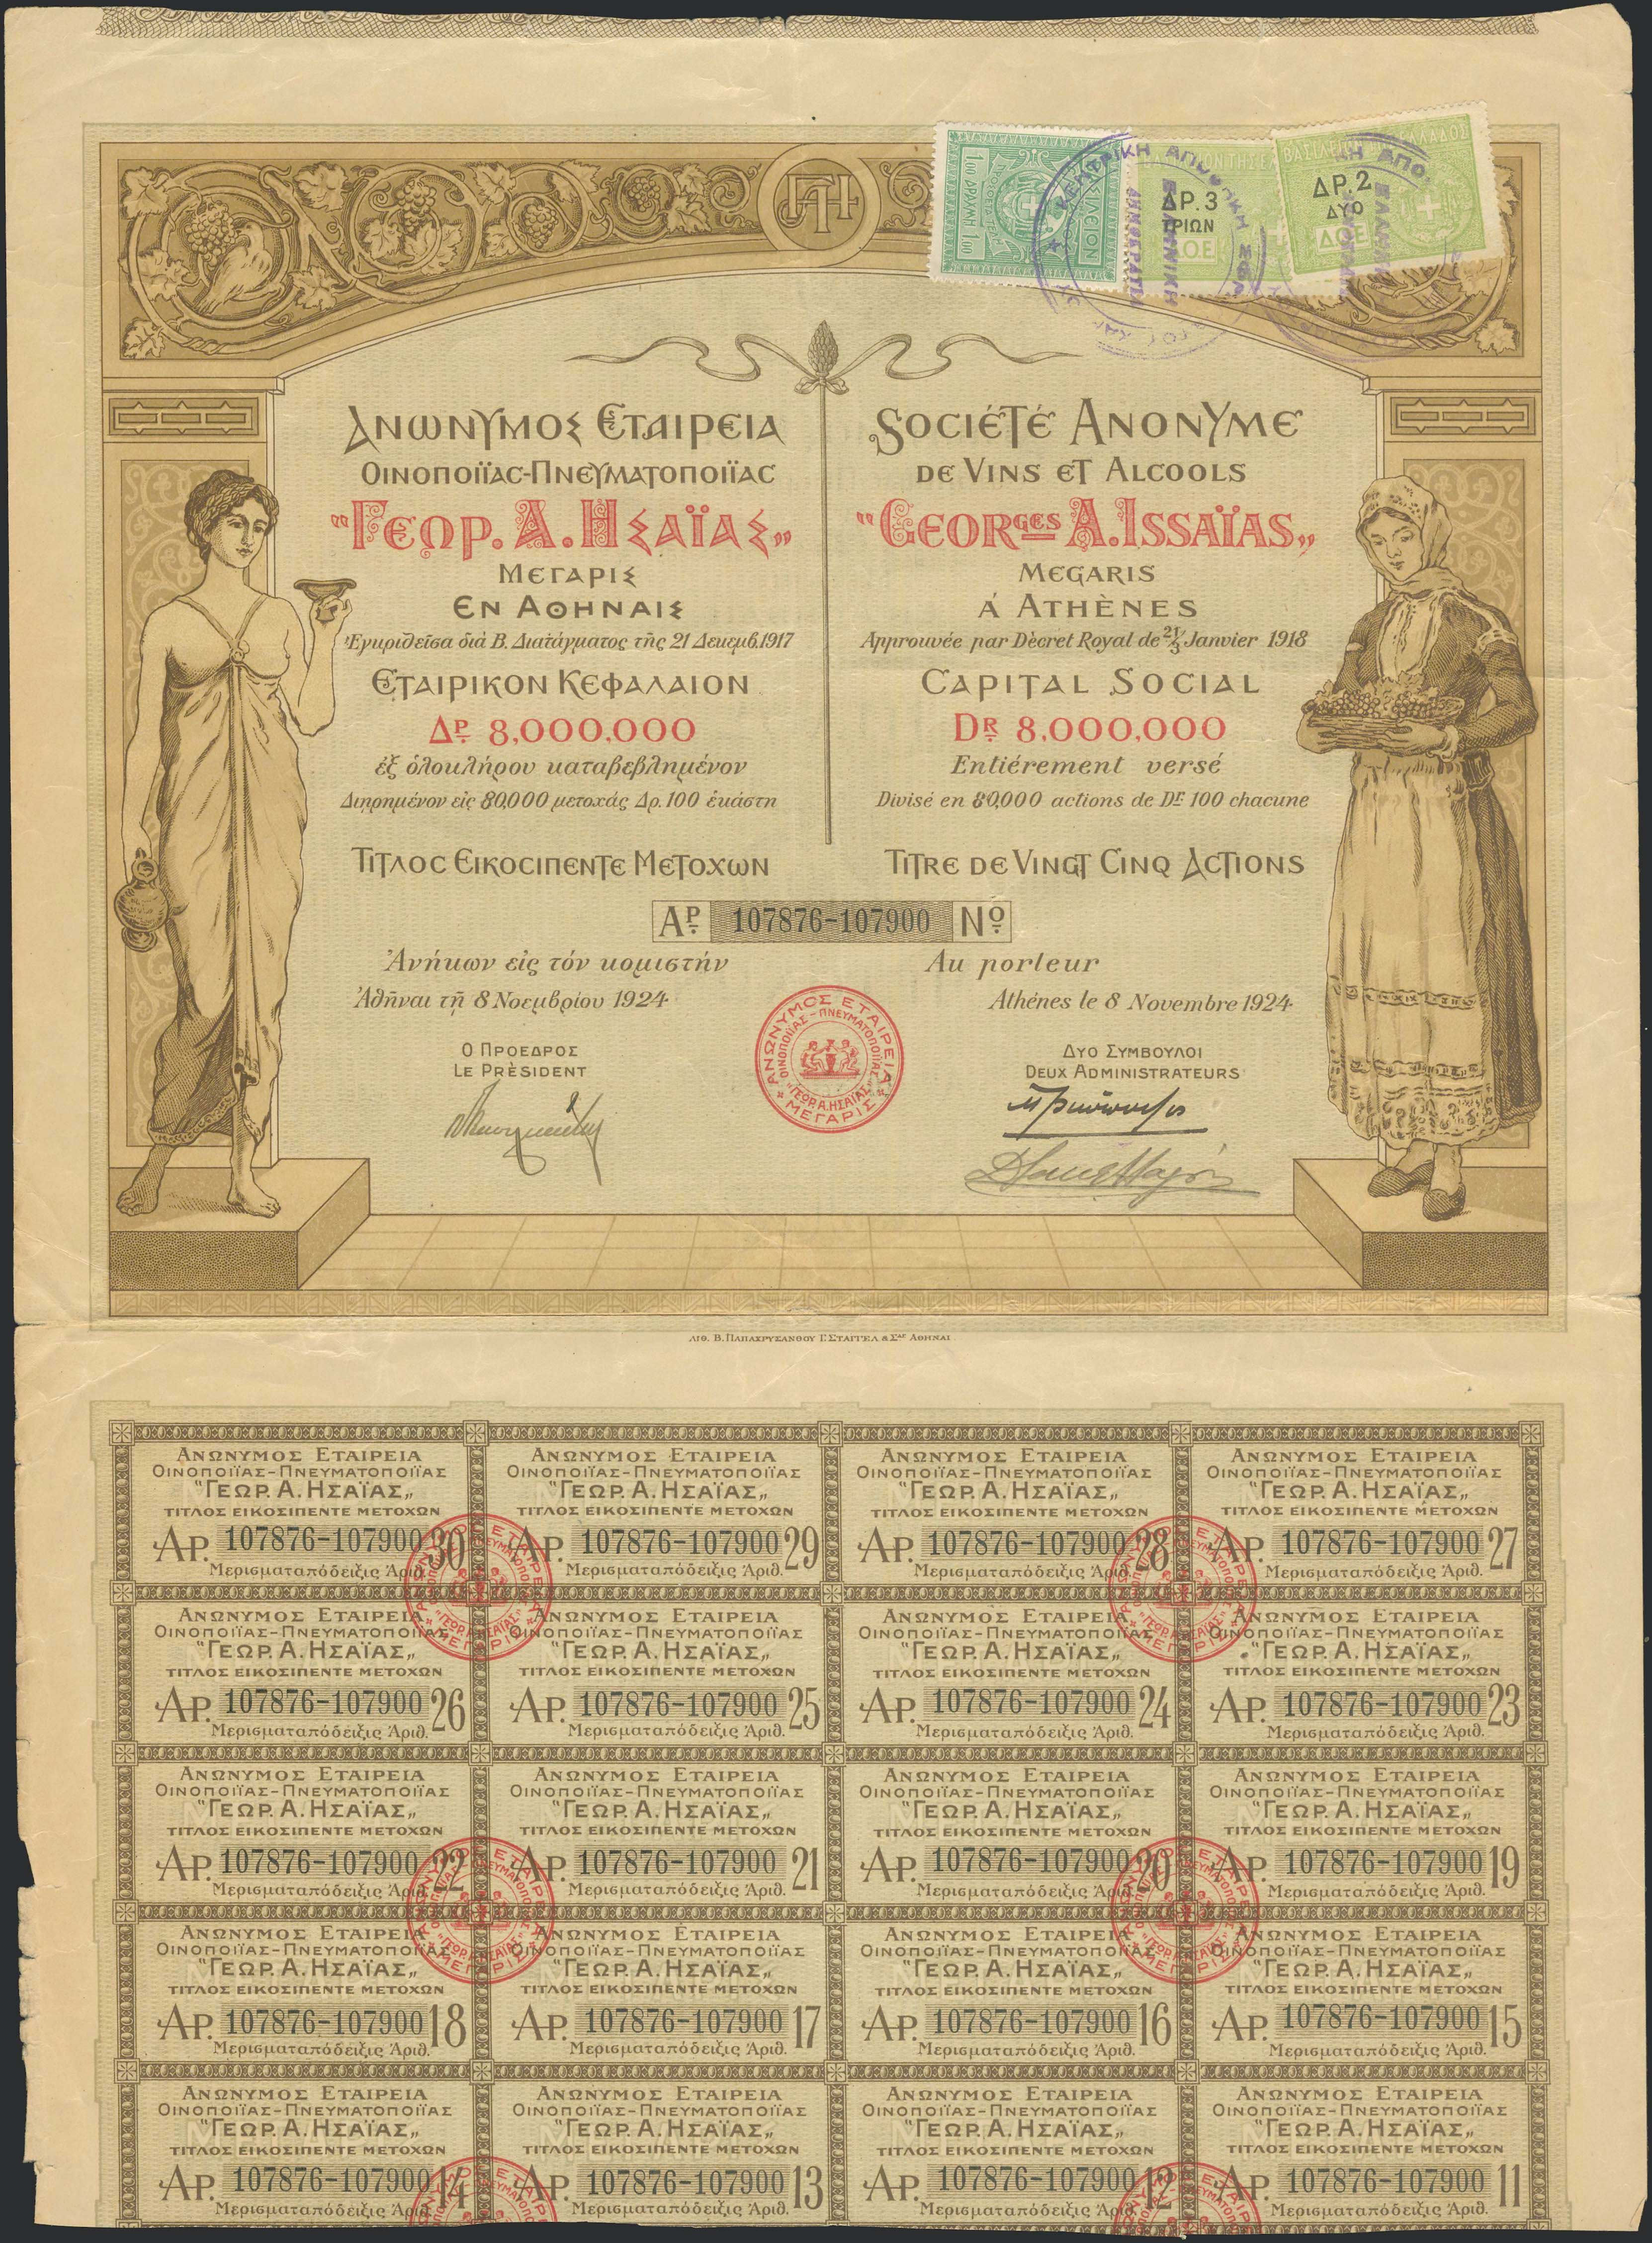 ΒΑΣΙΛΕΙΟΝ
1οο ΔΡΑΧΜΗ 1οο
ΔΡ.3
ΤΡΙΩΝ
ΔΡ.2
ΔΥΟ
ΔΟΕ
ΕΛΛΗΝΙΚΗ
ΔΗΜΟΚΡΑΤΙΑ
ΑΝΩΝΥΜΟΣ ΕΤΑΙΡΕΙΑ
ΟΙΝΟΠΟΙΪΑΣ-ΠΝΕΥΜΑΤΟΠΟΙΪΑΣ
"ΓΕΩΡ. Α. ΗΣΑΪΑΣ„
ΜΕΓΑΡΙΣ
ΕΝ ΑΘΗΝΑΙΣ
Ἐγκριθεῖσα διὰ Β. Διατάγματος τῆς 21 Δεκεμβ. 1917
ΕΤΑΙΡΙΚΟΝ ΚΕΦΑΛΑΙΟΝ
ΔΡ. 8,000,000
ἐξ ὁλοκλήρου καταβεβλημένον
Διῃρημένον εἰς 80,000 μετοχάς Δρ. 100 ἑκάστη
ΤΙΤΛΟΣ ΕΙΚΟΣΙΠΕΝΤΕ ΜΕΤΟΧΩΝ
SOCIÉTÉ ANONYME
DE VINS ET ALCOOLS
"GEORGES A. ISSAÏAS„
MEGARIS
Á ATHÈNES
Approuvée par Dècret Royal de 21/3 Janvier 1918
CAPITAL SOCIAL
DR. 8.000,000
Entiérement versé
Divisé en 80,000 actions de Dr. 100 chacune
TITRE DE VINGT CINQ ACTIONS
ΑΡ. 107876-107900 Nº
Ἀνήκων εἰς τόν κομιστήν
Ἀθῆναι τῇ 8 Νοεμβρίου 1924
Au porteur
Athénes le 8 Novembre 1924
Ο ΠΡΟΕΔΡΟΣ
LE PRÈSIDENT
ΑΝΩΝΥΜΟΣ ΕΤΑΙΡΕΙΑ
ΟΙΝΟΠΟΙΪΑΣ-ΠΝΕΥΜΑΤΟΠΟΙΪΑΣ
"ΓΕΩΡ. Α. ΗΣΑΪΑΣ"
ΜΕΓΑΡΙΣ
ΔΥΟ ΣΥΜΒΟΥΛΟΙ
DEUX ADMINISTRATEURS
ΛΙΘ. Β. ΠΑΠΑΧΡΥΣΑΝΘΟΥ Γ. ΣΤΑΓΓΕΛ & ΣΙΑΣ ΑΘΗΝΑΙ
ΑΝΩΝΥΜΟΣ ΕΤΑΙΡΕΙΑ
ΟΙΝΟΠΟΙΪΑΣ-ΠΝΕΥΜΑΤΟΠΟΙΪΑΣ
"ΓΕΩΡ. Α. ΗΣΑΪΑΣ„
ΤΙΤΛΟΣ ΕΙΚΟΣΙΠΕΝΤΕ ΜΕΤΟΧΩΝ
ΑΡ. 107876-107900 30
Μερισματαπόδειξις Ἀριθ.
ΑΝΩΝΥΜΟΣ ΕΤΑΙΡΕΙΑ
ΟΙΝΟΠΟΙΪΑΣ-ΠΝΕΥΜΑΤΟΠΟΙΪΑΣ
"ΓΕΩΡ. Α. ΗΣΑΪΑΣ„
ΤΙΤΛΟΣ ΕΙΚΟΣΙΠΕΝΤΕ ΜΕΤΟΧΩΝ
ΑΡ. 107876-107900 29
Μερισματαπόδειξις Ἀριθ.
ΑΝΩΝΥΜΟΣ ΕΤΑΙΡΕΙΑ
ΟΙΝΟΠΟΙΪΑΣ-ΠΝΕΥΜΑΤΟΠΟΙΪΑΣ
"ΓΕΩΡ. Α. ΗΣΑΪΑΣ„
ΤΙΤΛΟΣ ΕΙΚΟΣΙΠΕΝΤΕ ΜΕΤΟΧΩΝ
ΑΡ. 107876-107900 28
Μερισματαπόδειξις Ἀριθ.
ΑΝΩΝΥΜΟΣ ΕΤΑΙΡΕΙΑ
ΟΙΝΟΠΟΙΪΑΣ-ΠΝΕΥΜΑΤΟΠΟΙΪΑΣ
"ΓΕΩΡ. Α. ΗΣΑΪΑΣ„
ΤΙΤΛΟΣ ΕΙΚΟΣΙΠΕΝΤΕ ΜΕΤΟΧΩΝ
ΑΡ. 107876-107900 27
Μερισματαπόδειξις Ἀριθ.
ΑΝΩΝΥΜΟΣ ΕΤΑΙΡΕΙΑ
ΟΙΝΟΠΟΙΪΑΣ-ΠΝΕΥΜΑΤΟΠΟΙΪΑΣ
"ΓΕΩΡ. Α. ΗΣΑΪΑΣ„
ΤΙΤΛΟΣ ΕΙΚΟΣΙΠΕΝΤΕ ΜΕΤΟΧΩΝ
ΑΡ. 107876-107900 26
Μερισματαπόδειξις Ἀριθ.
ΑΝΩΝΥΜΟΣ ΕΤΑΙΡΕΙΑ
ΟΙΝΟΠΟΙΪΑΣ-ΠΝΕΥΜΑΤΟΠΟΙΪΑΣ
"ΓΕΩΡ. Α. ΗΣΑΪΑΣ„
ΤΙΤΛΟΣ ΕΙΚΟΣΙΠΕΝΤΕ ΜΕΤΟΧΩΝ
ΑΡ. 107876-107900 25
Μερισματαπόδειξις Ἀριθ.
ΑΝΩΝΥΜΟΣ ΕΤΑΙΡΕΙΑ
ΟΙΝΟΠΟΙΪΑΣ-ΠΝΕΥΜΑΤΟΠΟΙΪΑΣ
"ΓΕΩΡ. Α. ΗΣΑΪΑΣ„
ΤΙΤΛΟΣ ΕΙΚΟΣΙΠΕΝΤΕ ΜΕΤΟΧΩΝ
ΑΡ. 107876-107900 24
Μερισματαπόδειξις Ἀριθ.
ΑΝΩΝΥΜΟΣ ΕΤΑΙΡΕΙΑ
ΟΙΝΟΠΟΙΪΑΣ-ΠΝΕΥΜΑΤΟΠΟΙΪΑΣ
"ΓΕΩΡ. Α. ΗΣΑΪΑΣ„
ΤΙΤΛΟΣ ΕΙΚΟΣΙΠΕΝΤΕ ΜΕΤΟΧΩΝ
ΑΡ. 107876-107900 23
Μερισματαπόδειξις Ἀριθ.
ΑΝΩΝΥΜΟΣ ΕΤΑΙΡΕΙΑ
ΟΙΝΟΠΟΙΪΑΣ-ΠΝΕΥΜΑΤΟΠΟΙΪΑΣ
"ΓΕΩΡ. Α. ΗΣΑΪΑΣ„
ΤΙΤΛΟΣ ΕΙΚΟΣΙΠΕΝΤΕ ΜΕΤΟΧΩΝ
ΑΡ. 107876-107900 22
Μερισματαπόδειξις Ἀριθ.
ΑΝΩΝΥΜΟΣ ΕΤΑΙΡΕΙΑ
ΟΙΝΟΠΟΙΪΑΣ-ΠΝΕΥΜΑΤΟΠΟΙΪΑΣ
"ΓΕΩΡ. Α. ΗΣΑΪΑΣ„
ΤΙΤΛΟΣ ΕΙΚΟΣΙΠΕΝΤΕ ΜΕΤΟΧΩΝ
ΑΡ. 107876-107900 21
Μερισματαπόδειξις Ἀριθ.
ΑΝΩΝΥΜΟΣ ΕΤΑΙΡΕΙΑ
ΟΙΝΟΠΟΙΪΑΣ-ΠΝΕΥΜΑΤΟΠΟΙΪΑΣ
"ΓΕΩΡ. Α. ΗΣΑΪΑΣ„
ΤΙΤΛΟΣ ΕΙΚΟΣΙΠΕΝΤΕ ΜΕΤΟΧΩΝ
ΑΡ. 107876-107900 20
Μερισματαπόδειξις Ἀριθ.
ΑΝΩΝΥΜΟΣ ΕΤΑΙΡΕΙΑ
ΟΙΝΟΠΟΙΪΑΣ-ΠΝΕΥΜΑΤΟΠΟΙΪΑΣ
"ΓΕΩΡ. Α. ΗΣΑΪΑΣ„
ΤΙΤΛΟΣ ΕΙΚΟΣΙΠΕΝΤΕ ΜΕΤΟΧΩΝ
ΑΡ. 107876-107900 19
Μερισματαπόδειξις Ἀριθ.
ΑΝΩΝΥΜΟΣ ΕΤΑΙΡΕΙΑ
ΟΙΝΟΠΟΙΪΑΣ-ΠΝΕΥΜΑΤΟΠΟΙΪΑΣ
"ΓΕΩΡ. Α. ΗΣΑΪΑΣ„
ΤΙΤΛΟΣ ΕΙΚΟΣΙΠΕΝΤΕ ΜΕΤΟΧΩΝ
ΑΡ. 107876-107900 18
Μερισματαπόδειξις Ἀριθ.
ΑΝΩΝΥΜΟΣ ΕΤΑΙΡΕΙΑ
ΟΙΝΟΠΟΙΪΑΣ-ΠΝΕΥΜΑΤΟΠΟΙΪΑΣ
"ΓΕΩΡ. Α. ΗΣΑΪΑΣ„
ΤΙΤΛΟΣ ΕΙΚΟΣΙΠΕΝΤΕ ΜΕΤΟΧΩΝ
ΑΡ. 107876-107900 17
Μερισματαπόδειξις Ἀριθ.
ΑΝΩΝΥΜΟΣ ΕΤΑΙΡΕΙΑ
ΟΙΝΟΠΟΙΪΑΣ-ΠΝΕΥΜΑΤΟΠΟΙΪΑΣ
"ΓΕΩΡ. Α. ΗΣΑΪΑΣ„
ΤΙΤΛΟΣ ΕΙΚΟΣΙΠΕΝΤΕ ΜΕΤΟΧΩΝ
ΑΡ. 107876-107900 16
Μερισματαπόδειξις Ἀριθ.
ΑΝΩΝΥΜΟΣ ΕΤΑΙΡΕΙΑ
ΟΙΝΟΠΟΙΪΑΣ-ΠΝΕΥΜΑΤΟΠΟΙΪΑΣ
"ΓΕΩΡ. Α. ΗΣΑΪΑΣ„
ΤΙΤΛΟΣ ΕΙΚΟΣΙΠΕΝΤΕ ΜΕΤΟΧΩΝ
ΑΡ. 107876-107900 15
Μερισματαπόδειξις Ἀριθ.
ΑΝΩΝΥΜΟΣ ΕΤΑΙΡΕΙΑ
ΟΙΝΟΠΟΙΪΑΣ-ΠΝΕΥΜΑΤΟΠΟΙΪΑΣ
"ΓΕΩΡ. Α. ΗΣΑΪΑΣ„
ΤΙΤΛΟΣ ΕΙΚΟΣΙΠΕΝΤΕ ΜΕΤΟΧΩΝ
ΑΡ. 107876-107900 14
Μερισματαπόδειξις Ἀριθ.
ΑΝΩΝΥΜΟΣ ΕΤΑΙΡΕΙΑ
ΟΙΝΟΠΟΙΪΑΣ-ΠΝΕΥΜΑΤΟΠΟΙΪΑΣ
"ΓΕΩΡ. Α. ΗΣΑΪΑΣ„
ΤΙΤΛΟΣ ΕΙΚΟΣΙΠΕΝΤΕ ΜΕΤΟΧΩΝ
ΑΡ. 107876-107900 13
Μερισματαπόδειξις Ἀριθ.
ΑΝΩΝΥΜΟΣ ΕΤΑΙΡΕΙΑ
ΟΙΝΟΠΟΙΪΑΣ-ΠΝΕΥΜΑΤΟΠΟΙΪΑΣ
"ΓΕΩΡ. Α. ΗΣΑΪΑΣ„
ΤΙΤΛΟΣ ΕΙΚΟΣΙΠΕΝΤΕ ΜΕΤΟΧΩΝ
ΑΡ. 107876-107900 12
Μερισματαπόδειξις Ἀριθ.
ΑΝΩΝΥΜΟΣ ΕΤΑΙΡΕΙΑ
ΟΙΝΟΠΟΙΪΑΣ-ΠΝΕΥΜΑΤΟΠΟΙΪΑΣ
"ΓΕΩΡ. Α. ΗΣΑΪΑΣ„
ΤΙΤΛΟΣ ΕΙΚΟΣΙΠΕΝΤΕ ΜΕΤΟΧΩΝ
ΑΡ. 107876-107900 11
Μερισματαπόδειξις Ἀριθ.